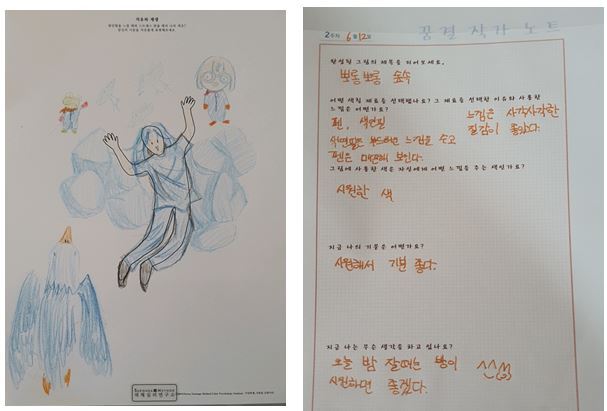 자유화 색칠
2주차 6월 12일
꿈결 작가 노트
완성된 그림의 제목을 지어보세요.
뽀롱뽀롱 숲속
어떤 색칠 재료를 선택했나요? 그 재료를 선택한 이유와 사용한
느낌은 어떤가요?
펜, 색연필
느낌은 사각사각한
질감이 좋았다.
색연필은 부드러운 느낌을 주고
펜은 매끈해 보인다.
그림에 사용한 색은 자신에게 어떤 느낌을 주는 색인가요?
시원한 색
지금 나의 기분은 어떤가요?
시원해서 기분 좋다.
지금 나는 무슨 생각을 하고 있나요?
오늘 밤 잘때는 방이
시원하면 좋겠다.